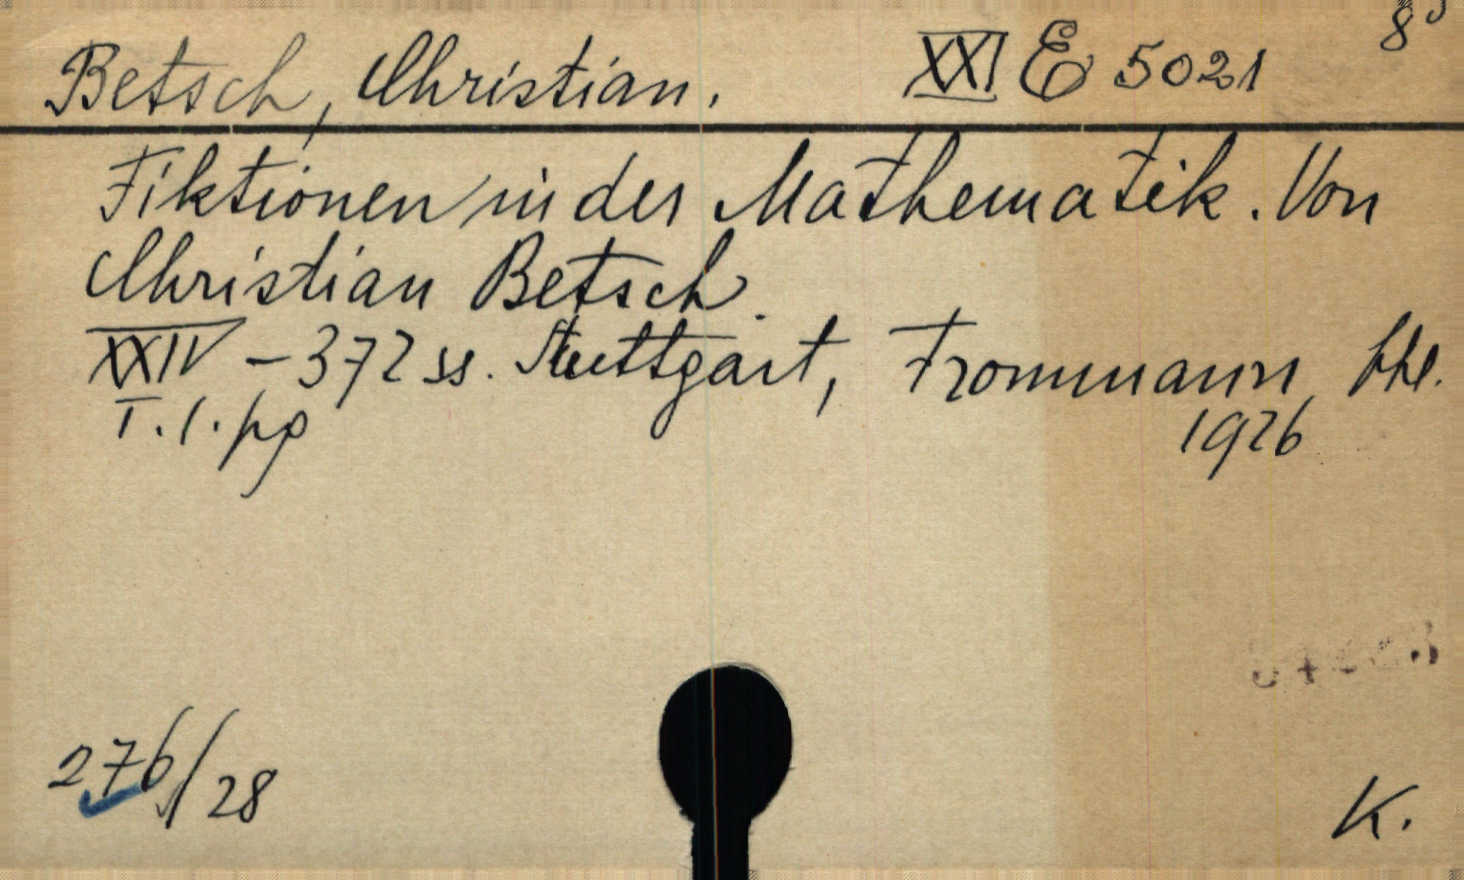 8°
Betsch, Christian. XXI E 5021
Fiktionen in der Mathematik. Von
Christian Betsch.
XXIV - 372 ss. Stuttgart, Frommann
1926
T. l. pg
276/28
K.